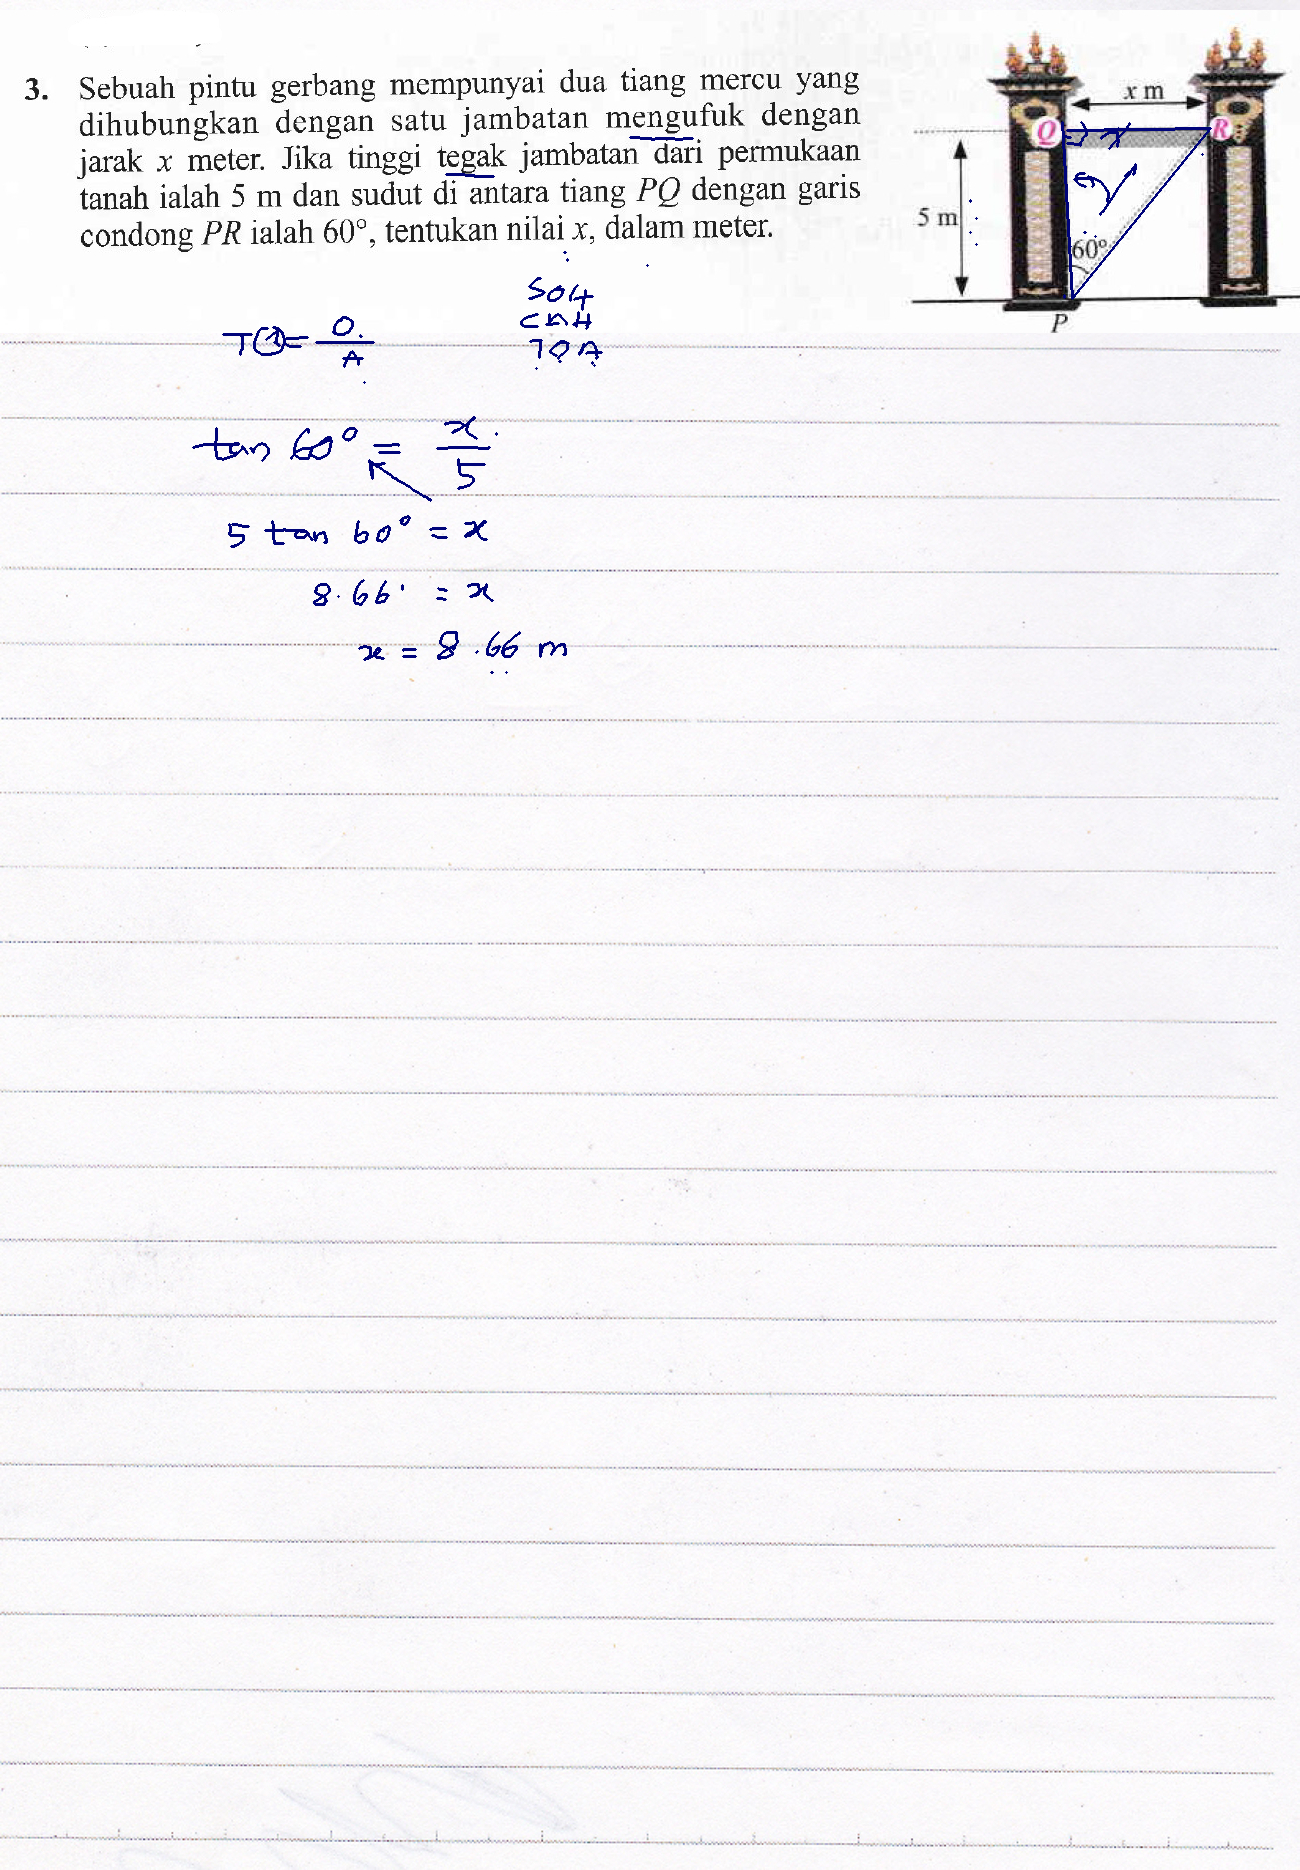 3. Sebuah pintu gerbang mempunyai dua tiang mercu yang
dihubungkan dengan satu jambatan mengufuk dengan
jarak x meter. Jika tinggi tegak jambatan dari permukaan
tanah ialah 5 m dan sudut di antara tiang PQ dengan garis
condong PR ialah 60°, tentukan nilai x, dalam meter.
x m
Q
R
5 m
60°
P
SOH
CAH
TOA
T = O/A
tan 60° = x/5
5 tan 60° = x
8.66 = x
x = 8.66 m